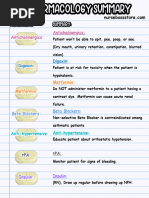 PHARMACOLOGY SUMMARY
nursebossstore.com
SUMMARY
Anticholinergics:
Anticholinergics
Patient won't be able to spit, pee, poop, or see.
(Dry mouth, urinary retention, constipation, blurred
vision)
Digoxin
Digoxin:
Patient is at risk for toxicity when the patient is
hypokalemic.
Metformin
Metformin:
Do NOT administer to a patient receiving a contrast
dye. Metformin can cause acute renal
failure.
Beta Blockers
Beta Blockers:
Non-selective Beta Blocker is contraindicated among
asthmatic patients
Anti-hypertensive
Anti-hypertensive:
Educate patient about orthostatic hypotension.
tPA
tPA:
Monitor patient for signs of bleeding.
Insulin
Insulin:
(RN). Draw up regular before drawing up NPH.